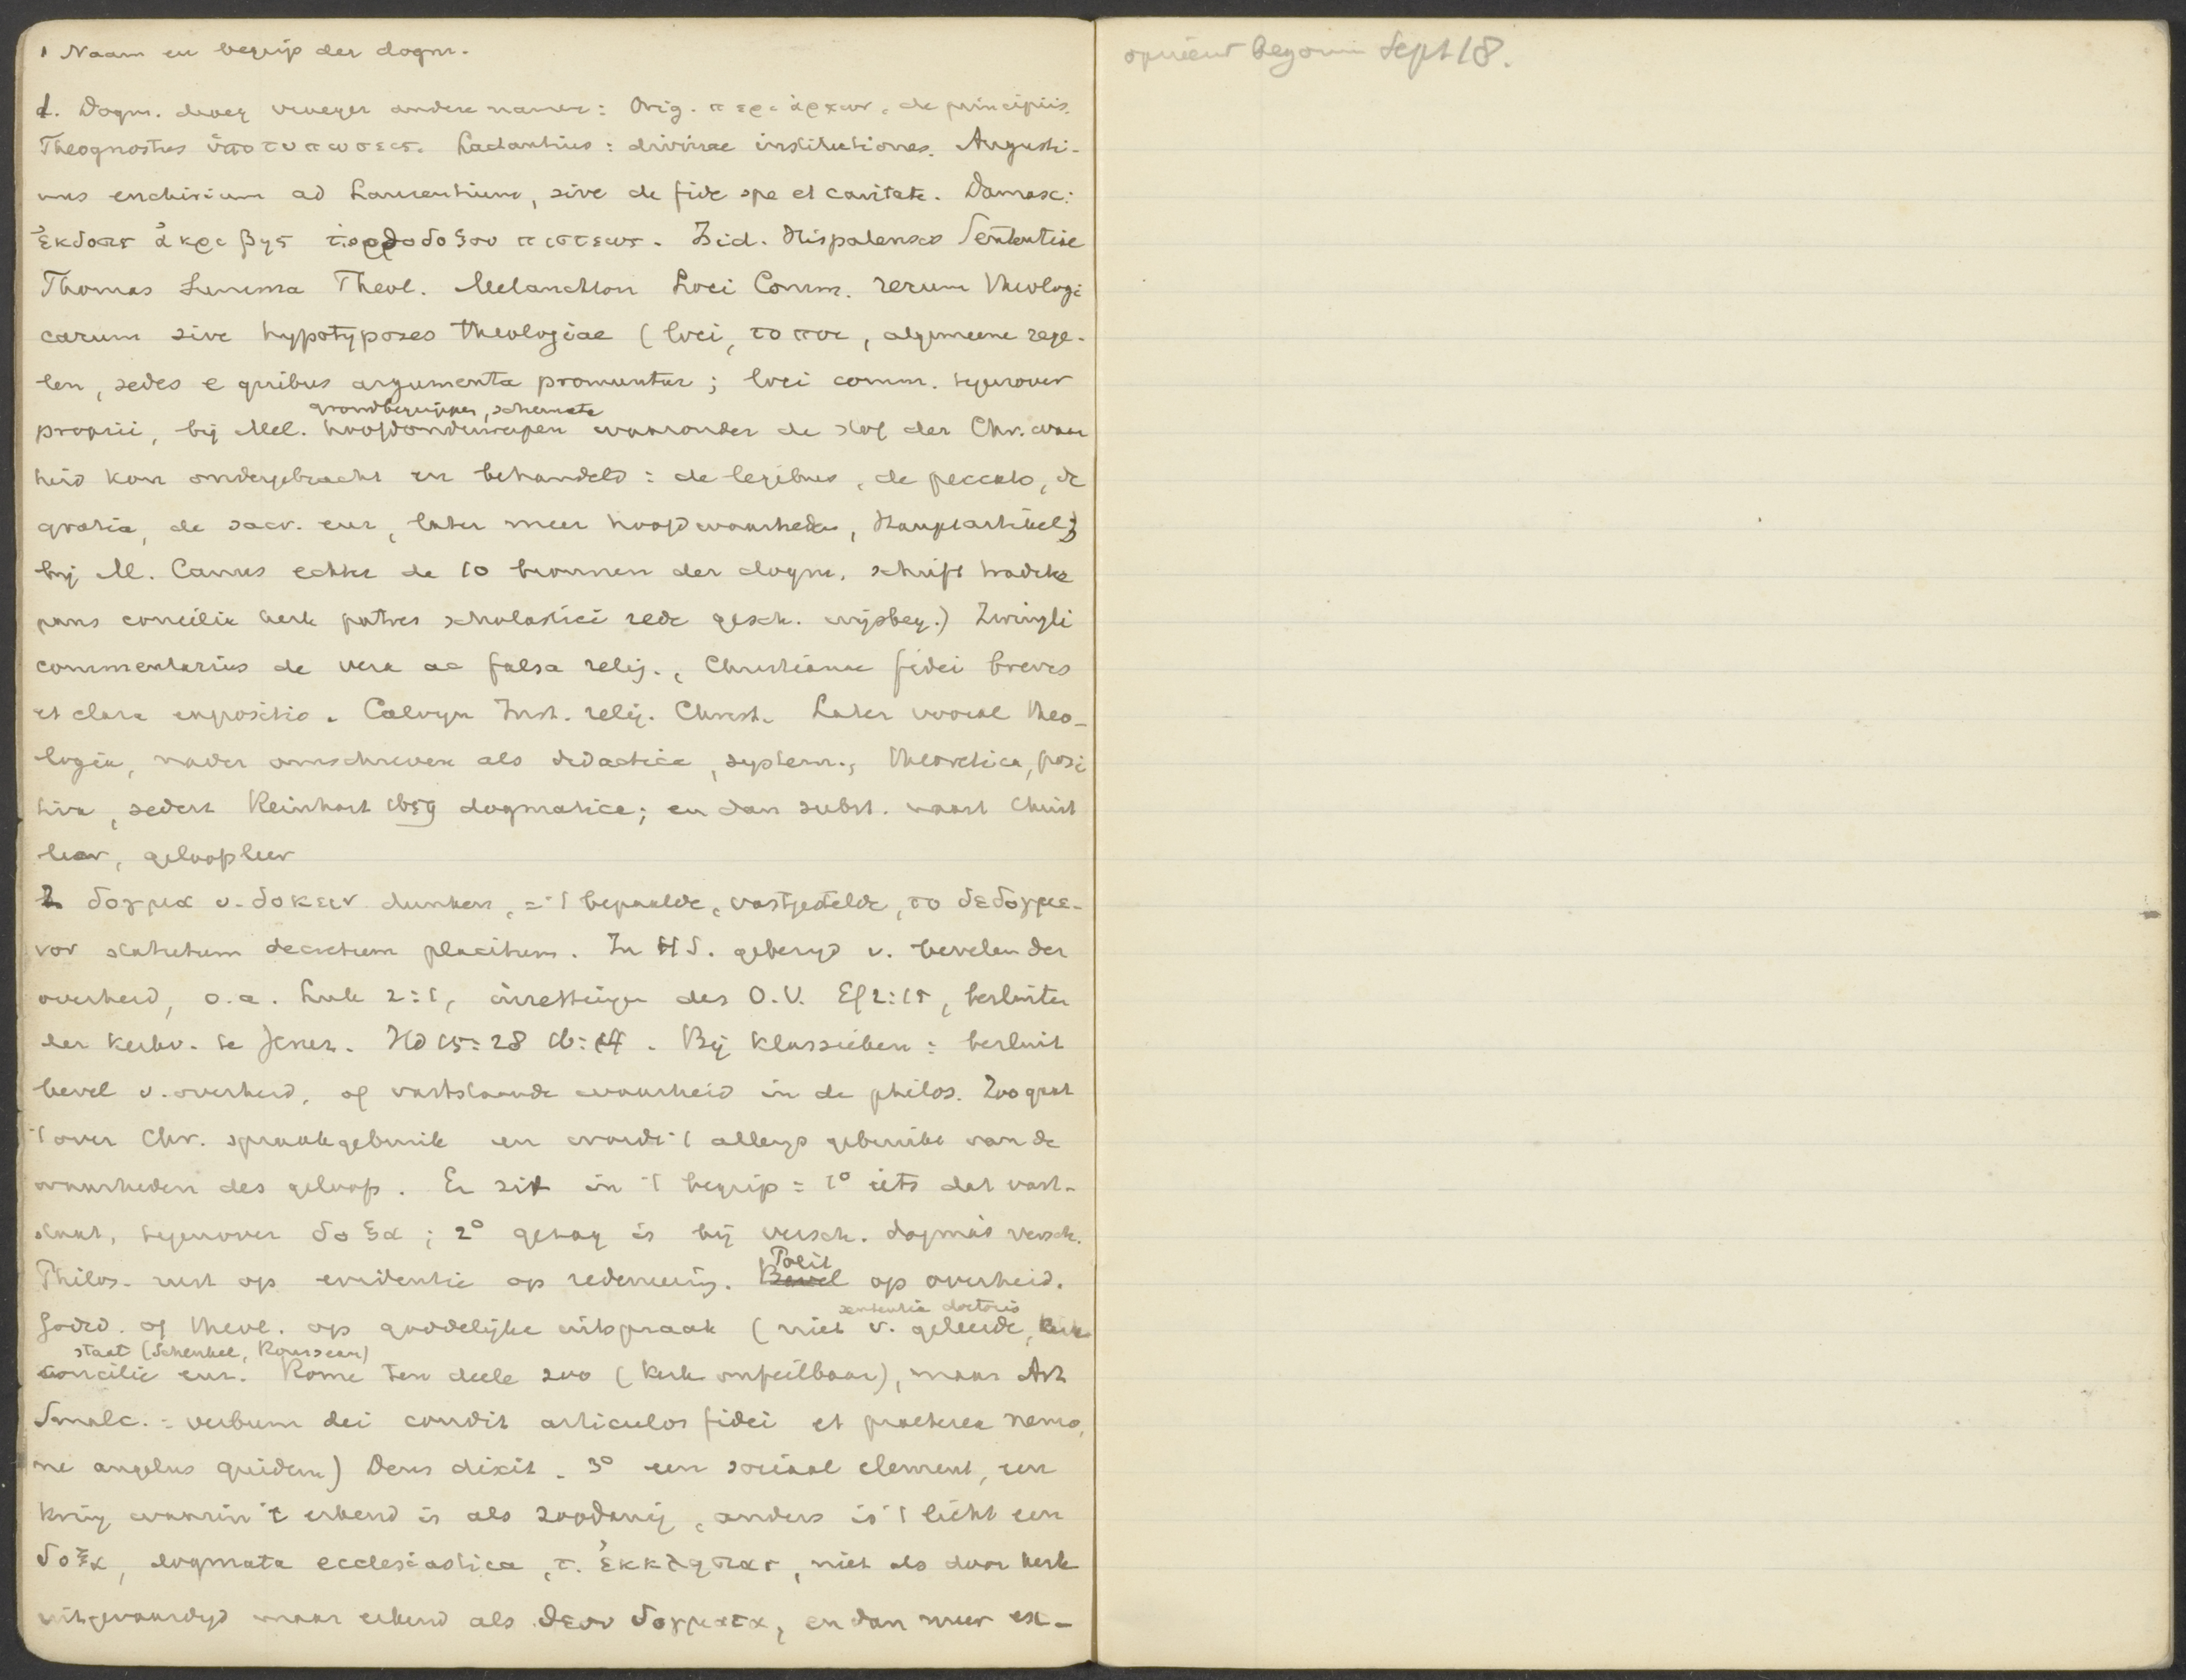 1 Naam en begrip der dogm.
1. Dogm. droeg vroeger andere namen: Orig. περι ἀρχων, de principiis.
Theognostus ὑποτυπωσεις. Lactantius: divinae institutiones. Augusti-
nus enchirium ad Laurentium, sive de fide spe et caritate. Damasc:
ἐκδοσις ἀκριβης τ. ορθοδοξου πιστεως. Isid. Hispalensis Sententiae
Thomas Summa Theol. Melanchton Loci Comm. rerum theologi
carum sive hypotyposes theologiae (loci, τοποι, algemeene rege-
len, sedes e quibus argumenta promuntur; loci comm. tegenover
grondbegrippen, schemata
proprii, bij Mel. hoofdonderwerpen waaronder de stof der Chr. waar
heid kon ondergebracht en behandeld: de legibus, de peccato, de
gratia, de sacr. enz, later meer hoofdwaarheden, Hauptartikel;
bij M. Canus echter de 10 bronnen der dogm. schrift traditie
paus concilie kerk patres scholastici rede gesch. wijsbeg.) Zwingli
commentarius de vera ac falsa relig., Christianae fidei brevis
et clara expositio. Calvyn Inst. relig. Christ. Later vooral theo-
logia, nader omschreven als didactica, system., theoretica, posi
tiva, sedert Reinhart 1659 dogmatice; en dan subst. naast Christ
leer, geloofsleer
2 δογμα v. δοκειν dunken, = 't bepaalde, vastgestelde, το δεδογμε-
νον statutum decretum placitum. In HS. gebezigd v. bevelen der
overheid, o.a. Luk 2:1, inzettingen des O.V. Ef 2:15, besluiten
der kerkv. te Jeruz. Hd 15:28 16:4. Bij klassieken: besluit
bevel v. overheid, of vaststaande waarheid in de philos. Zoo gaat
't over Chr. spraakgebruik en wordt 't allengs gebruikt van de
waarheden des geloofs. Er zit in 't begrip: 1° iets dat vast-
staat, tegenover δοξα; 2° gezag is bij versch. dogma's versch.
Polit
Philos. rust op evidentie op redeneering. Bevel op overheid.
sententia doctoris
Godsd. of theol. op goddelijke uitspraak (niet v. geleerde, kerk
staat (Schenkel, Rousseau)
concilie enz. Rome ten deele zoo (kerk onfeilbaar), maar Art
Smalc.: verbum dei condit articulos fidei et praeterea nemo,
ne angelus quidem) Deus dixit. 3° een sociaal element, een
kring waarin 't erkend is als zoodanig, anders is 't licht een
δοξα, dogmata ecclesiastica, τ. ἐκκλησιας, niet als door kerk
uitgevaardigd maar erkend als θεου δογματα, en dan meer ex-
opnieuw begonnen Sept 18.